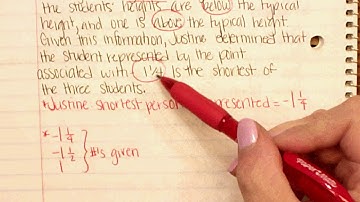 the students' heights are below the typical
height, and one is above the typical height.
Given this information, Justine determined that
the student represented by the point
associated with -1 1/4 is the shortest of
the three students.
*Justine shortest = -1 1/4
* -1 1/4
-1 1/2 } #'s given
1